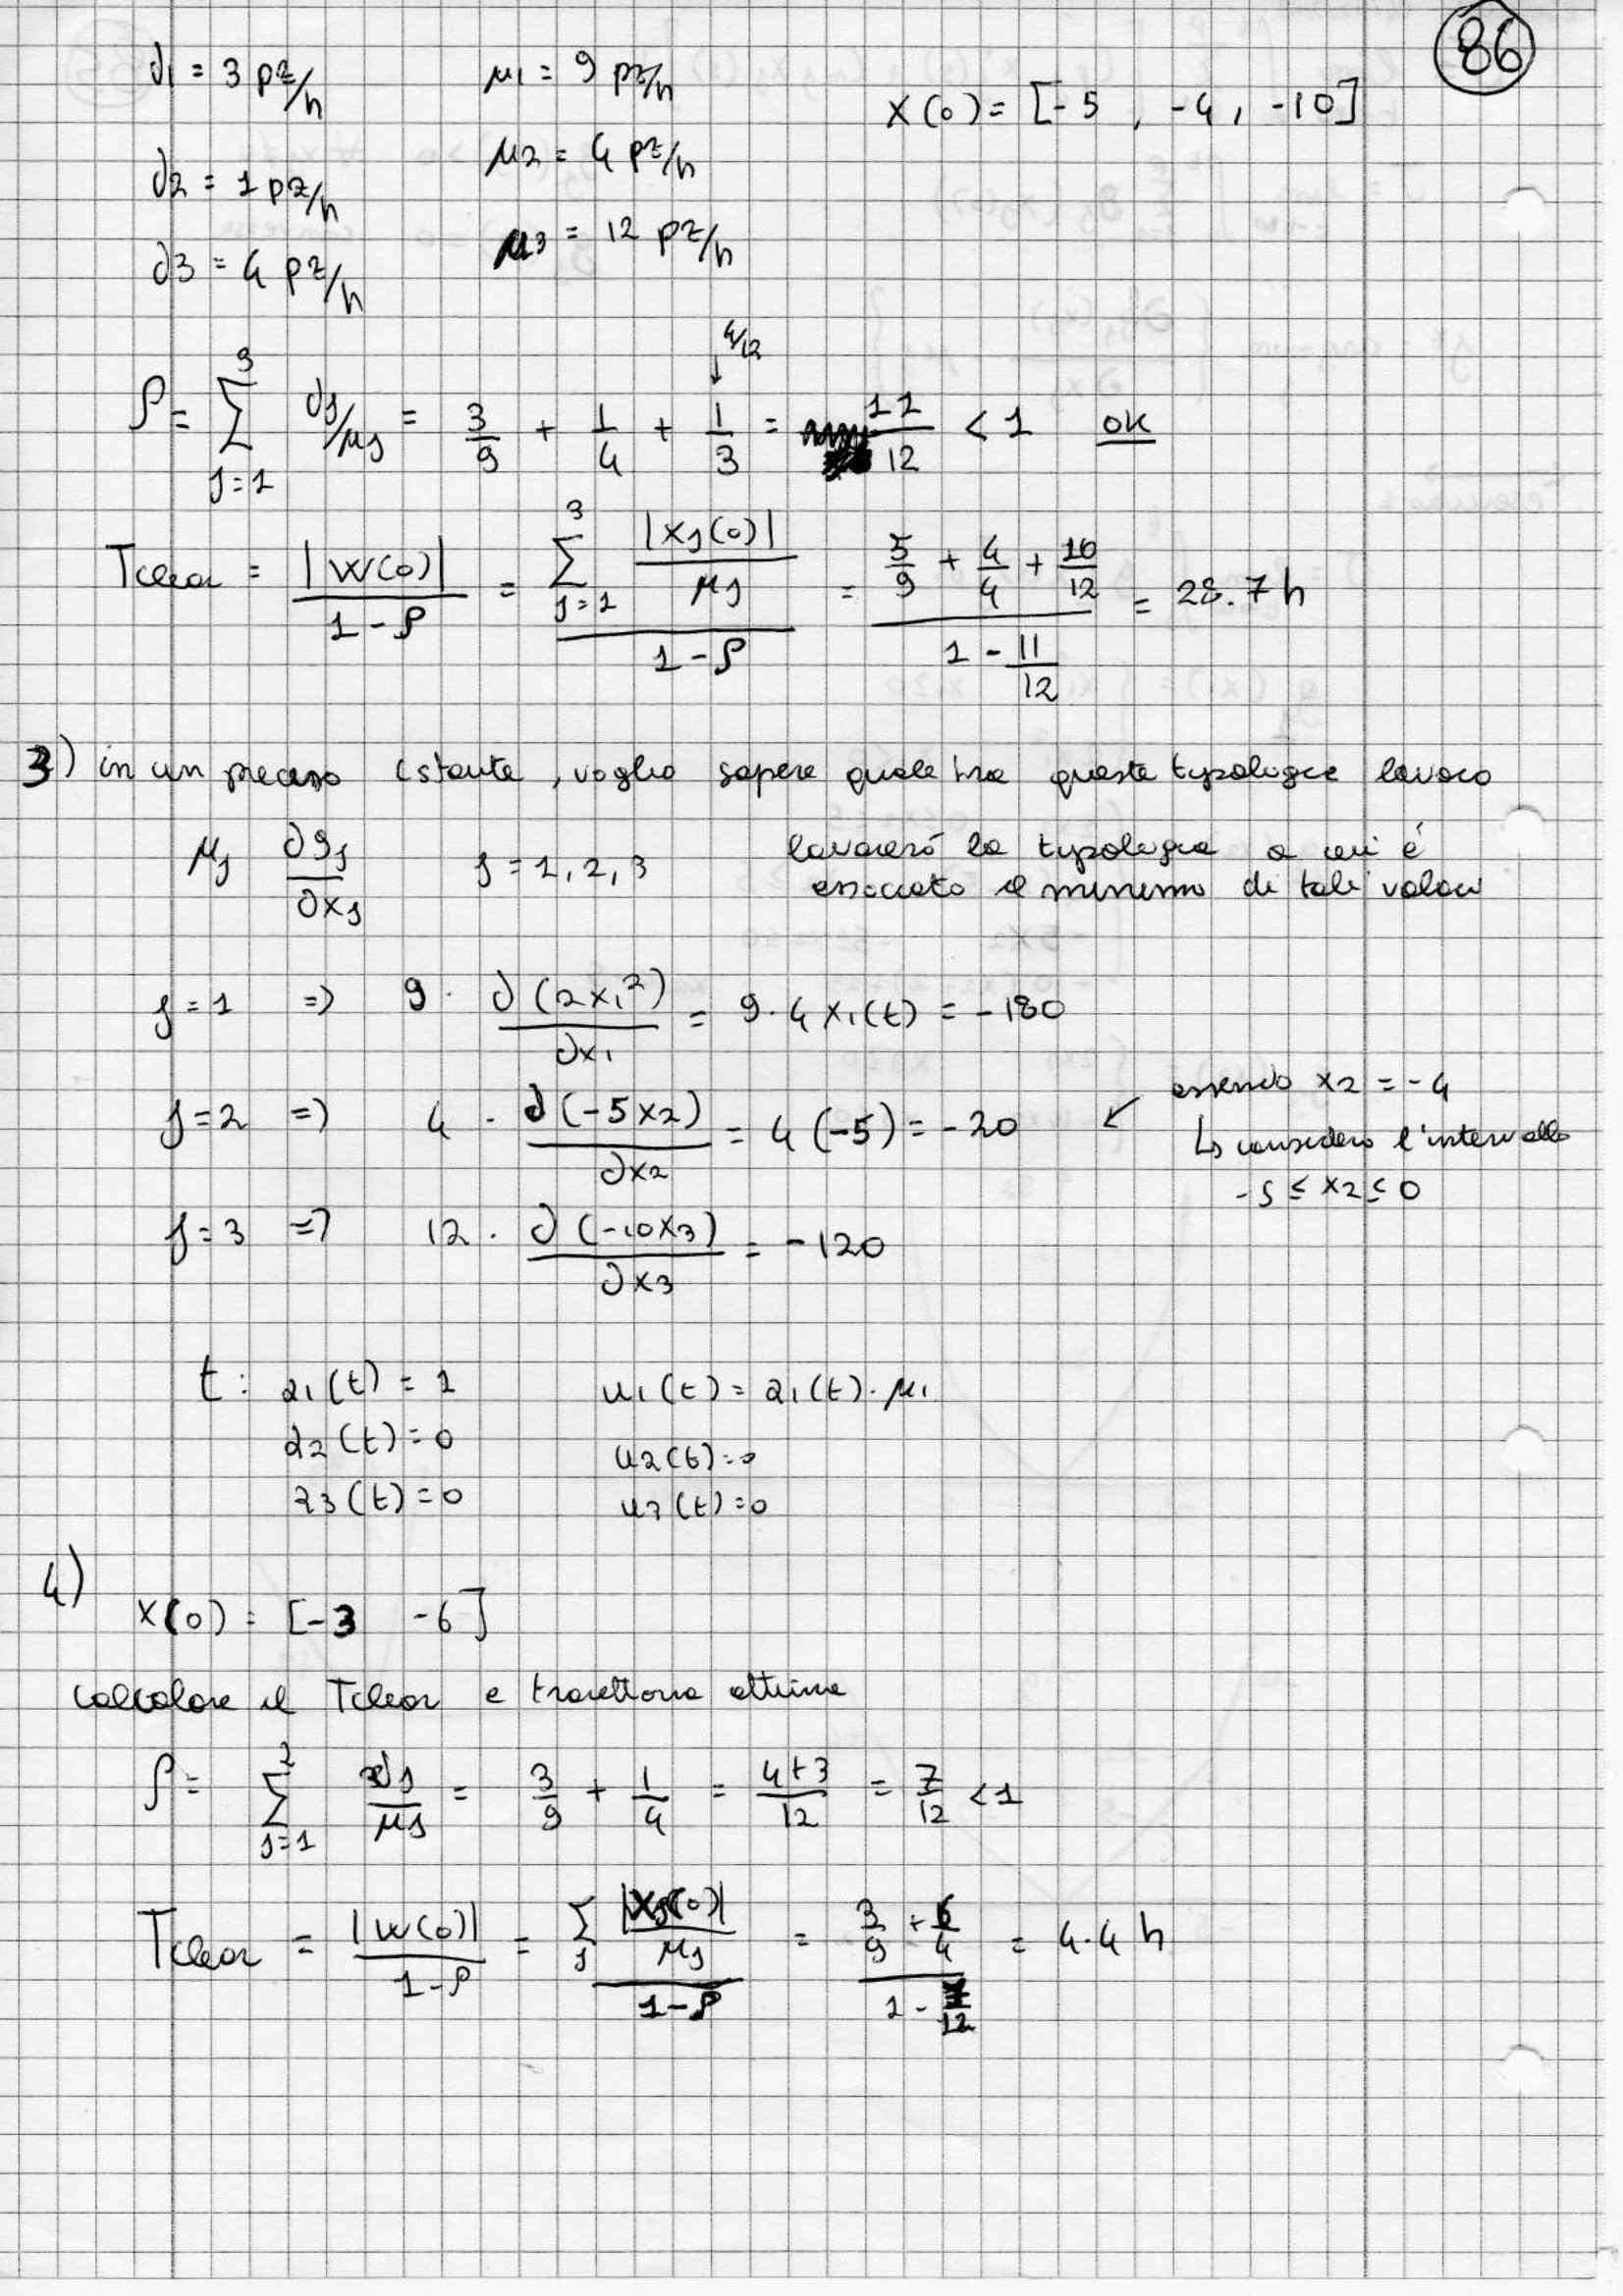 86
d1 = 3 pz/h    μ1 = 9 pz/h    x(0) = [-5 , -4 , -10]
d2 = 1 pz/h    μ2 = 4 pz/h
d3 = 4 pz/h    μ3 = 12 pz/h
4/12
ρ = Σ_{j=1}^{3} dj/μj = 3/9 + 1/4 + 1/3 = 11/12 < 1 OK
Tclear = |W(0)| / (1-ρ) = (Σ_{j=1}^{3} |xj(0)|/μj) / (1-ρ) = (5/9 + 4/4 + 10/12) / (1 - 11/12) = 28.7 h
3) in un preciso istante, voglio sapere quale tra queste tipologie lavoro
μj ∂gj/∂xj    j = 1, 2, 3    lavorerò la tipologia a cui è
associato il minimo di tali valori
j = 1 => 9 · ∂(2x1²)/∂x1 = 9 · 4 x1(t) = -180
j = 2 => 4 · ∂(-5x2)/∂x2 = 4 (-5) = -20 ↙ essendo x2 = -4
↳ considero l'intervallo
-5 ≤ x2 ≤ 0
j = 3 => 12 · ∂(-10x3)/∂x3 = -120
t: a1(t) = 1    u1(t) = a1(t) · μ1
a2(t) = 0    u2(t) = 0
a3(t) = 0    u3(t) = 0
4)
x(0) = [-3 -6]
calcolare il Tclear e traiettoria ottima
ρ = Σ_{j=1}^{2} dj/μj = 3/9 + 1/4 = (4+3)/12 = 7/12 < 1
Tclear = |W(0)| / (1-ρ) = (Σ_j |xj(0)|/μj) / (1-ρ) = (3/9 + 6/4) / (1 - 7/12) = 4.4 h